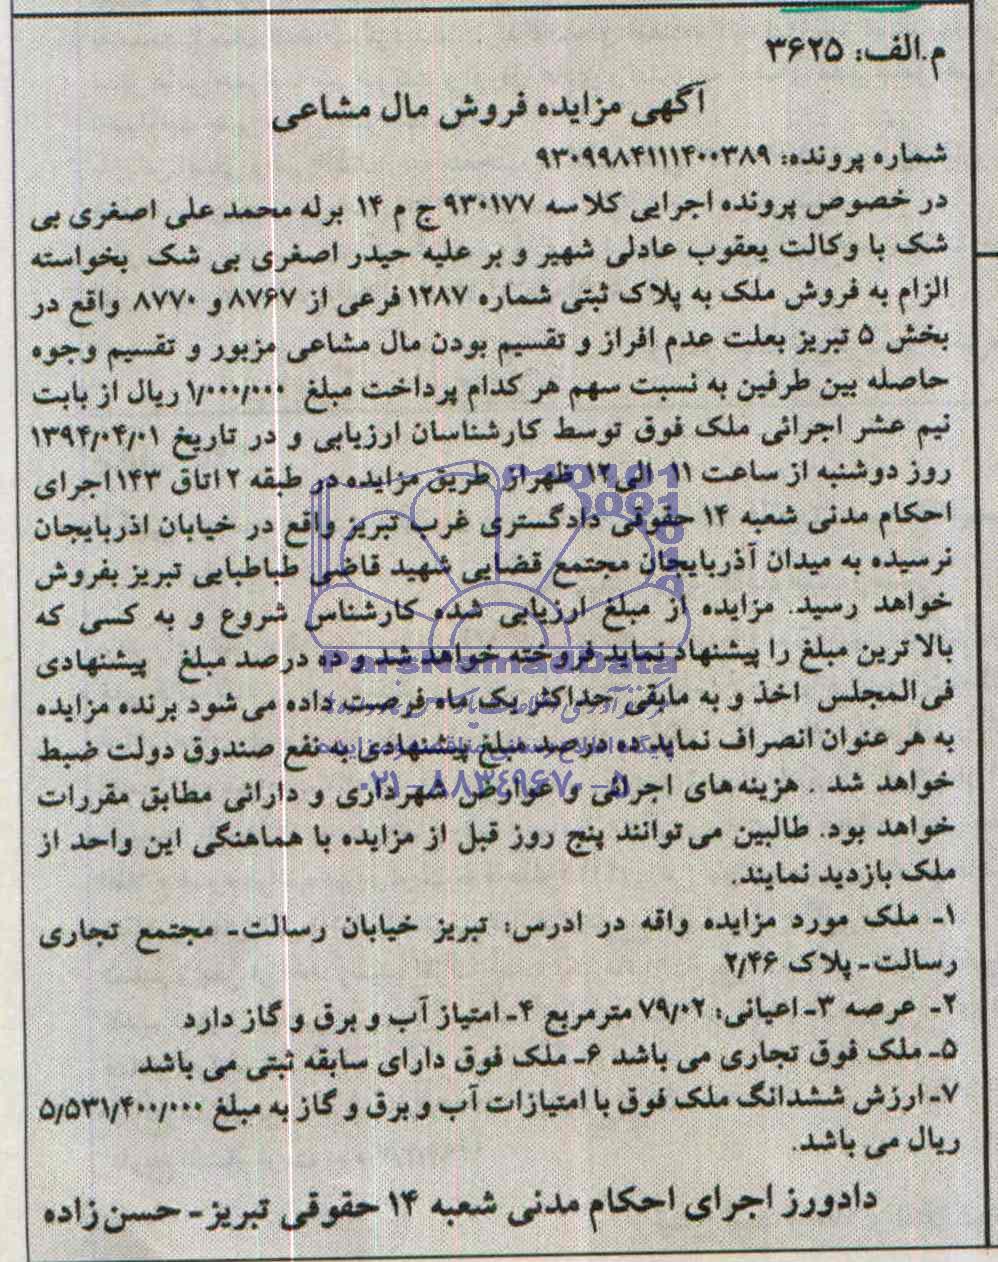 م.الف: ۳۶۲۵
آگهی مزایده فروش مال مشاعی
شماره پرونده: ۹۳۰۹۹۸۴۱۱۱۴۰۰۳۸۹
در خصوص پرونده اجرایی کلاسه ۹۳۰۱۷۷ ج م ۱۴ برله محمد علی اصغری بی
شک با وکالت یعقوب عادلی شهیر و بر علیه حیدر اصغری بی شک بخواسته
الزام به فروش ملک به پلاک ثبتی شماره ۱۲۸۷ فرعی از ۸۷۶۷ و ۸۷۷۰ واقع در
بخش ۵ تبریز بعلت عدم افراز و تقسیم بودن مال مشاعی مزبور و تقسیم وجوه
حاصله بین طرفین به نسبت سهم هر کدام پرداخت مبلغ ۱/۰۰۰/۰۰۰ ریال از بابت
نیم عشر اجرائی ملک فوق توسط کارشناسان ارزیابی و در تاریخ ۱۳۹۴/۰۴/۰۱
روز دوشنبه از ساعت ۱۱ الی ۱۲ ظهر از طریق مزایده در طبقه ۲ اتاق ۱۴۳ اجرای
احکام مدنی شعبه ۱۴ حقوقی دادگستری غرب تبریز واقع در خیابان اذربایجان
نرسیده به میدان آذربایجان مجتمع قضایی شهید قاضی طباطبایی تبریز بفروش
خواهد رسید. مزایده از مبلغ ارزیابی شده کارشناس شروع و به کسی که
بالا ترین مبلغ را پیشنهاد نماید فروخته خواهد شد و ده درصد مبلغ پیشنهادی
فی المجلس اخذ و به مابقی حداکثر یک ماه فرصت داده می شود برنده مزایده
به هر عنوان انصراف نماید ده درصد مبلغ پیشنهادی به نفع صندوق دولت ضبط
خواهد شد . هزینه های اجرائی و عوارض شهرداری و دارائی مطابق مقررات
خواهد بود. طالبین می توانند پنج روز قبل از مزایده با هماهنگی این واحد از
ملک بازدید نمایند.
۱- ملک مورد مزایده واقه در ادرس: تبریز خیابان رسالت- مجتمع تجاری
رسالت- پلاک ۲/۴۶
۲- عرصه ۳- اعیانی: ۷۹/۰۲ مترمربع ۴- امتیاز آب و برق و گاز دارد
۵- ملک فوق تجاری می باشد ۶- ملک فوق دارای سابقه ثبتی می باشد
۷- ارزش ششدانگ ملک فوق با امتیازات آب و برق و گاز به مبلغ ۵/۵۳۱/۴۰۰/۰۰۰
ریال می باشد.
دادورز اجرای احکام مدنی شعبه ۱۴ حقوقی تبریز- حسن زاده
ParsNamadData
۰۲۱-۸۸۳۴۹۶۷۰-۵